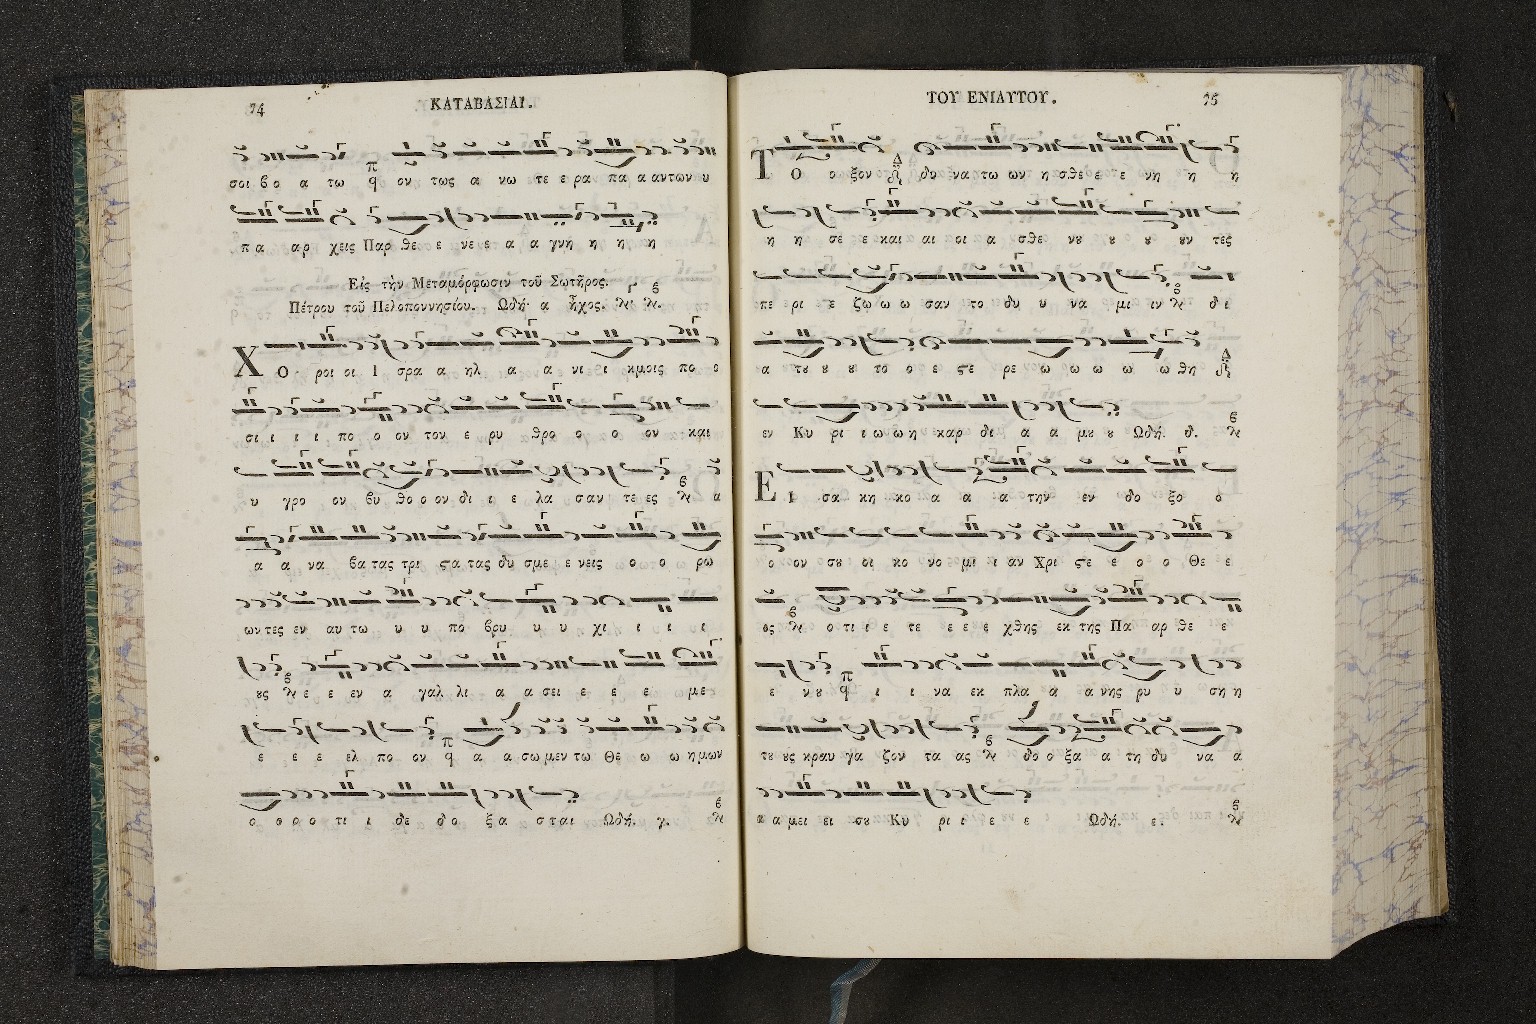 74 ΚΑΤΑΒΑΣΙΑΙ.
σοι βο α τω ον τως α νω τε ε ρα πα α αντων υ
πα αρ χεις Παρ θε ε νε ε α α γνη η η η
Εἰς τὴν Μεταμόρφωσιν τοῦ Σωτῆρος.
Πέτρου τοῦ Πελοποννησίου. Ωδή· α ἦχος.
Χο ροι οι Ι σρα α ηλ α α νι ι κμοις πο ο
σι ι ι ι πο ο ον τον ε ρυ θρο ο ο ον και
υ γρο ον βυ θο ο ον δι ι ε λα σαν τε ες α
α α να βα τας τρι ϛα τας δυ σμε ε νεις ο ο ρω
ων τες εν αυ τω υ υ πο βρυ υ υ χι ι ι ι
ȣς ε ε εν α γαλ λι α α σει ε ε ε με
ε ε ε ελ πο ον α α α σω μεν τω Θε ω ω η μων
ο ο ο ο τι ι δε δο ξα α σται Ωδή. γ.
ΤΟΥ ΕΝΙΑΥΤΟΥ. 75
Το ο ξον δυ να τω ων η σθε ε ε νη η η
η η σε ε και αι οι α σθε νȣ ȣ ȣ ȣν τες
πε ρι ε ζω ω ω σαν το δυ υ να μι ιν δι
α τȣ ȣ ȣ το ο ε ϛε ρε ω ω ω ω ω θη
εν Κυ ρι ι ω ω η καρ δι α α μȣ ȣ Ωδή. δ.
Ει σα κη κο α α α την εν δο ξο ο
ο ον σȣ οι κο νο μι ι αν Χρι ϛε ε ο ο Θε ε
ος ο τι ι ε τε ε ε ε χθης εκ της Πα αρ θε ε
ε νȣ ι ι να εκ πλα α α νης ρυ υ ση η
τȣ ȣς κραυ γα ζον τα ας δο ο ξα α τη δυ να α
α α μει ει σȣ Κυ ρι ι ε ε ε Ωδή. ε.